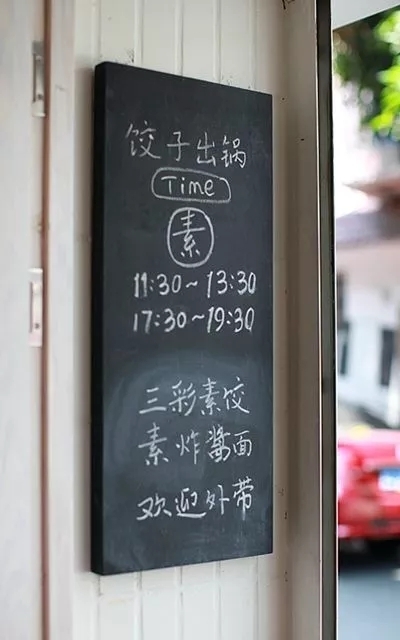 饺子出锅
Time
素
11:30~13:30
17:30~19:30
三彩素饺
素炸酱面
欢迎外带